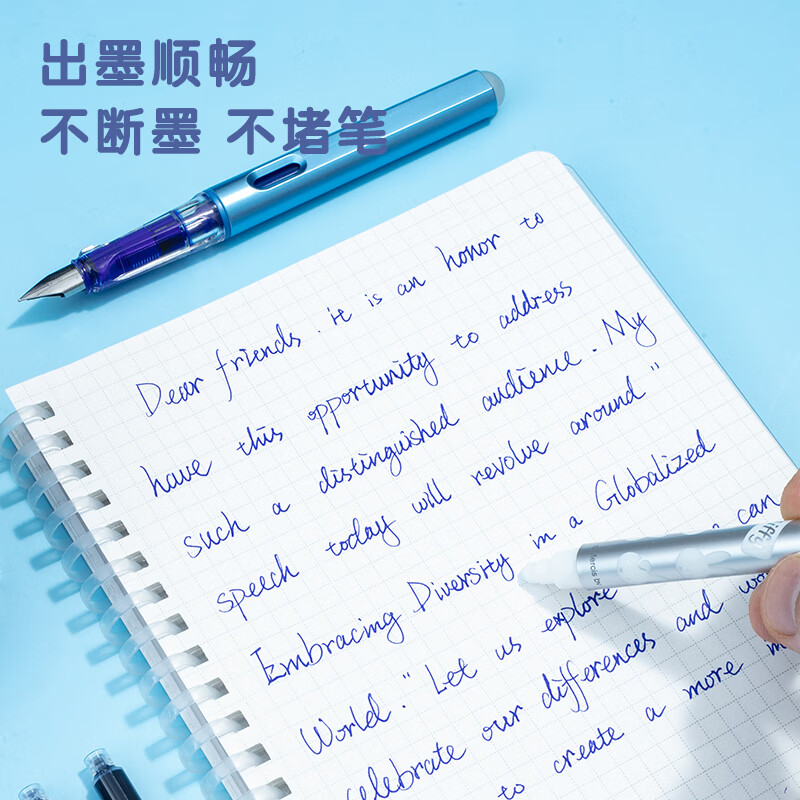 出墨顺畅
不断墨 不堵笔
Dear friends. it is an honor to
have this opportunity to address
such a distinguished audience. My
speech today will revolve around "
Embracing Diversity in a Globalized
World." Let us explore can
celebrate our differences and
to create a more